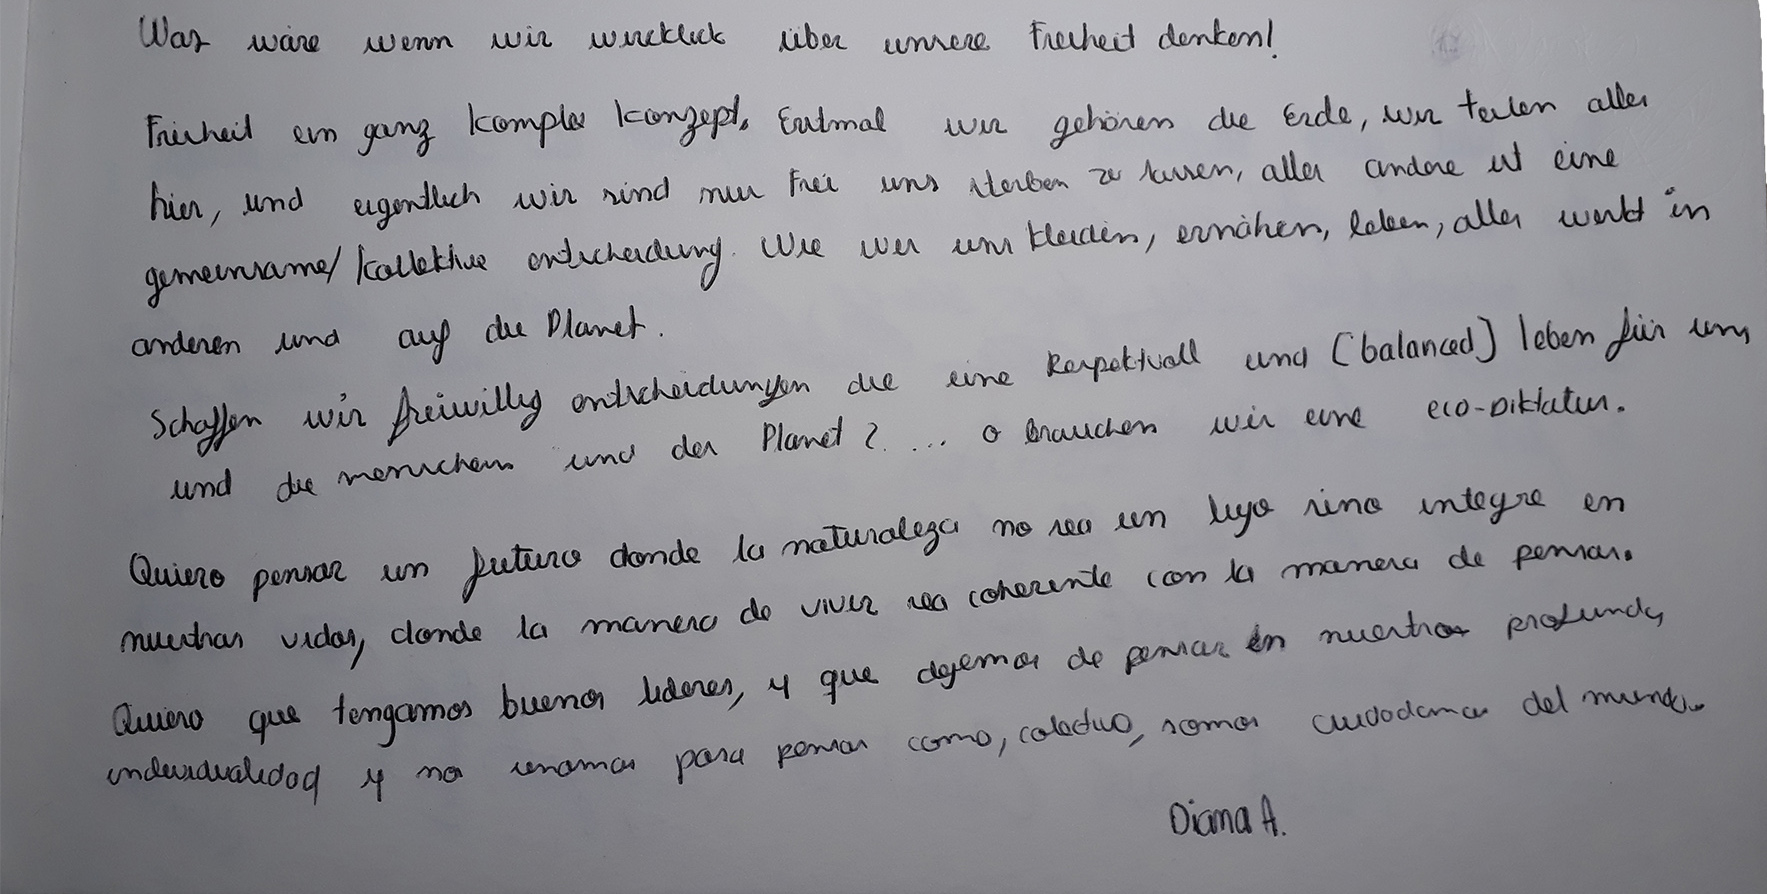 Was wäre wenn wir wircklick über unsere Freiheit denken!
Freiheit ein ganz komplex konzept. Erstmal wir gehören die Erde, wir teilen alles
hier, und eigentlich wir sind nur frei uns sterben zu lassen, alles andere ist eine
gemeinsame/kollektive entscheidung. Wie wir uns kleiden, ernähen, leben, alles wirkt in
anderen und auf die Planet.
Schaffen wir freiwillig entscheidungen die eine Respektvoll und [balanced] leben für uns
und die menschen und der Planet? ... o brauchen wir eine eco-Diktatur.
Quiero pensar un futuro donde la naturaleza no sea un lujo sino integre en
nuestras vidas, donde la manera de vivir sea coherente con la manera de pensar.
Quiero que tengamos buenos lideres, y que dejemos de pensar en nuestra profunda
individualidad y nos unamos para pensar como, colectivo, somos ciudadanos del mundo.
Diana A.